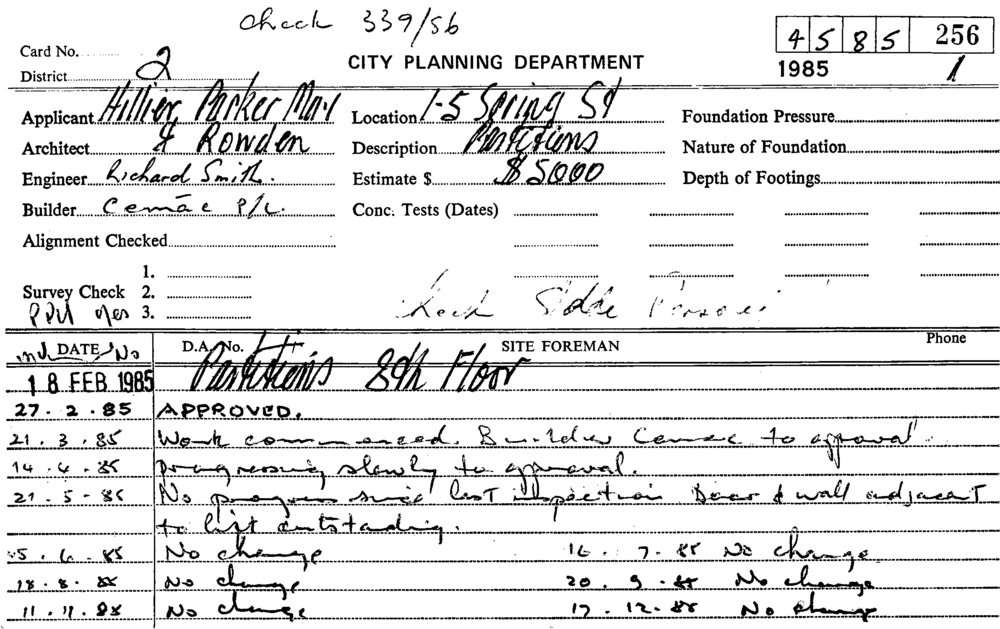 Check 339/56
4585 256
Card No. 2
CITY PLANNING DEPARTMENT
1985 1
District
Applicant Hillier Parker May Location 1-5 Spring St Foundation Pressure
Architect & Rowden Description Partitions Nature of Foundation
Engineer Richard Smith. Estimate $ $5000 Depth of Footings
Builder Cemac P/L. Conc. Tests (Dates)
Alignment Checked
1.
Survey Check 2.
3.
DATE No D.A. No. SITE FOREMAN Phone
18 FEB 1985 Partitions 8th Floor
27.2.85 APPROVED.
21.3.85 Work commenced. Builder Cemac to approval.
14.4.85 progressing slowly to approval.
21.5.85 No progress since last inspection Door & wall adjacent
to lift outstanding.
5.6.85 No change 16.7.85 No change
18.8.85 No change 20.9.85 No change
11.11.85 No change 17.12.85 No change